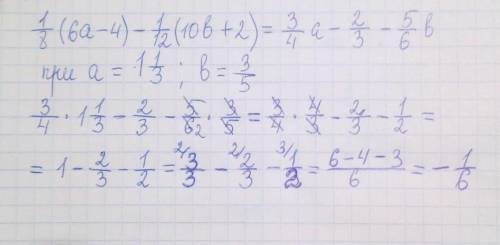 1/8 (6a-4) - 1/12 (10в+2) = 3/4 a - 2/3 - 5/6 в
при a = 1 1/3 ; в = 3/5
3/4 · 1 1/3 - 2/3 - 5/6 2 · 3/5 = 3/4 · 4/3 - 2/3 - 1/2 =
= 1 - 2/3 - 1/2 = 2/ 3/3 - 2/ 2/3 - 3/ 1/2 = 6-4-3/6 = - 1/6